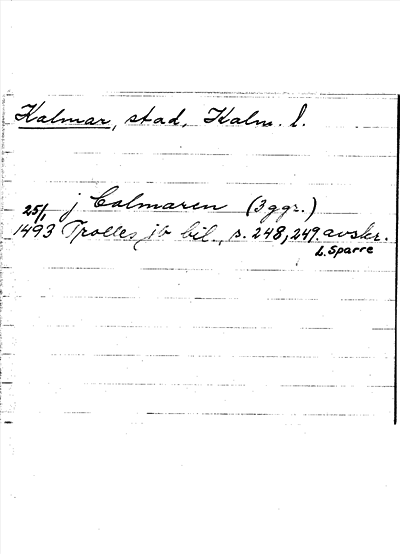 Kalmar, stad, Kalm. l.
25/1 j Calmaren (3 ggr.)
1493 Trolles jb bil., s. 248, 249. avskr.
L. Sparre